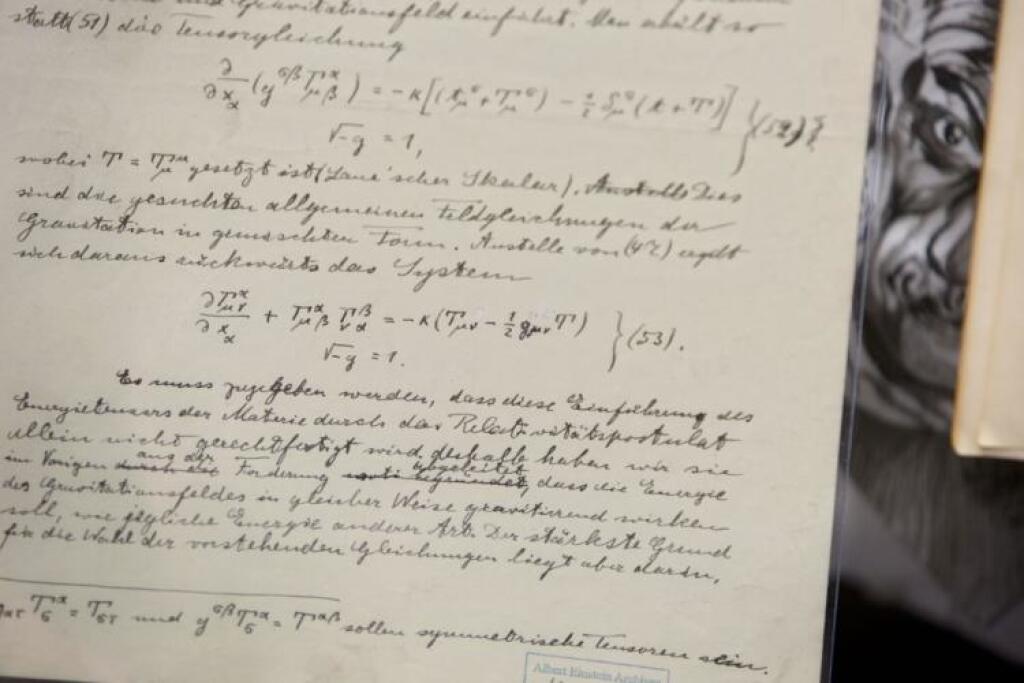 und Gravitationsfeld einführt. Man erhält so
statt (51) die Tensorgleichung
∂/∂x_α (g^{σβ} Γ^α_{μβ}) = -κ[(t_μ^σ + T_μ^σ) - 1/2 δ_μ^σ (t + T)] } (52)
√-g = 1,
wobei T = T_μ^μ gesetzt ist (Laue'scher Skalar). Dies
sind die gesuchten allgemeinen Feldgleichungen der
Gravitation in gemischter Form. Anstelle von (47) ergibt
sich daraus rückwärts das System
∂Γ^α_{μν}/∂x_α + Γ^α_{μβ} Γ^β_{να} = -κ(T_{μν} - 1/2 g_{μν} T) } (53).
√-g = 1.
Es muss zugegeben werden, dass diese Einführung des
Energietensors der Materie durch das Relativitätspostulat
allein nicht gerechtfertigt wird, deshalb haben wir sie
im Vorigen aus der Forderung abgeleitet, dass die Energie
des Gravitationsfeldes in gleicher Weise gravitierend wirken
soll, wie jegliche Energie anderer Art. Der stärkste Grund
für die Wahl der vorstehenden Gleichungen liegt aber darin,
T_σ^α = T_{στ} und g^{σβ} T_σ^α = T^{αβ} sollen symmetrische Tensoren sein.
Albert Einstein Archives